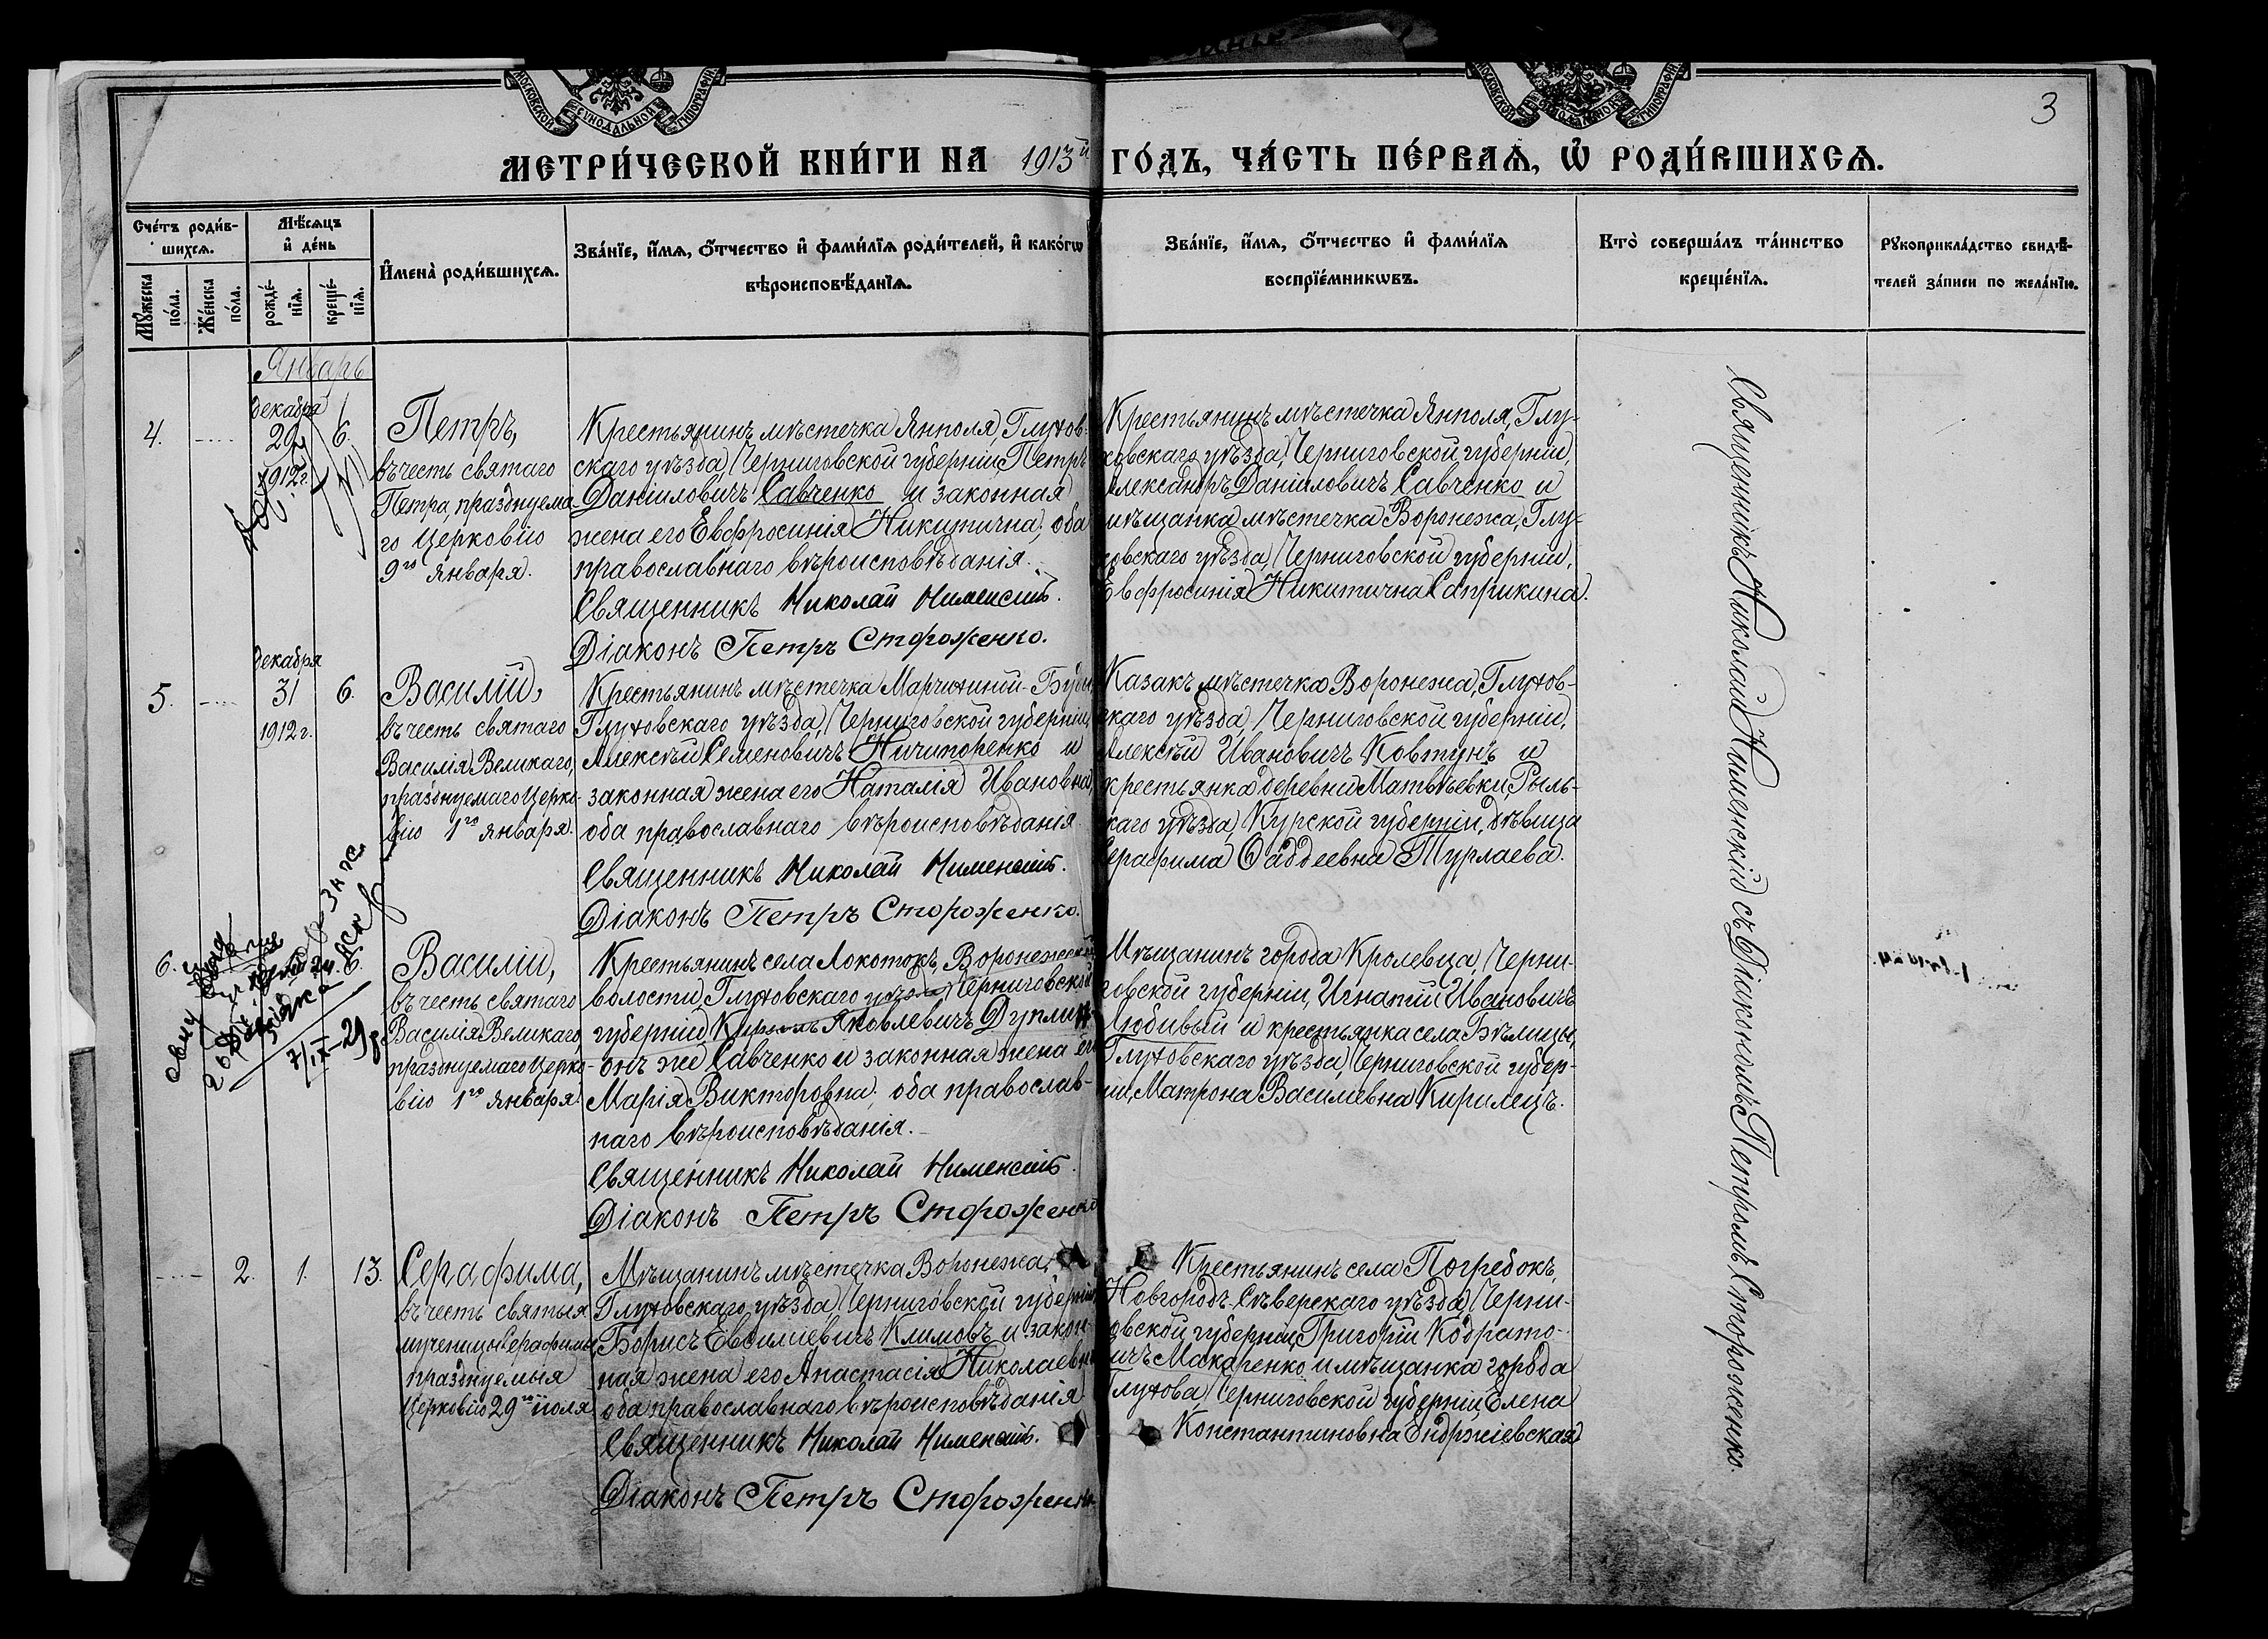 МОСКОВСКОЙ СУНОДАЛЬНОЙ ТИПОГРАФІИ
МОСКОВСКОЙ СУНОДАЛЬНОЙ ТИПОГРАФІИ
3
МЕТРИ́ЧЕСКОЙ КНИ́ГИ НА 1913й ГО́ДЪ, ЧА́СТЬ ПЕ́РВАѦ, Ѡ҆ РОДИ́ВШИХСѦ.
Сче́тъ роди́в-
шихсѧ.
Мꙋжеска по́ла.
Же́нска по́ла.
Мѣ́сѧцъ
и҆ де́нь
рожде́-
нїѧ.
креще́-
нїѧ.
И҆мена̀ роди́вшихсѧ.
Зва́нїе, и҆́мѧ, ѻ҆́тчество и҆ фами́лїѧ роди́телей, и҆ како́гѡ
вѣроисповѣ́данїѧ.
Зва́нїе, и҆́мѧ, ѻ҆́тчество и҆ фами́лїѧ
воспрїе́мникѡвъ.
Кто̀ соверша́лъ та́инство
креще́нїѧ.
Рꙋкоприкла́дство свидѣ́-
телей за́писи по жела́нїю.
Январь
4.
декабря
29
1912 г.
6.
Петръ,
въ честь святаго
Петра, празднуема-
го Церковію
9го января.
Крестьянинъ мѣстечка Янполя, Глухов-
скаго уѣзда, Черниговской губерніи Петръ
Даніиловичъ Савченко и законная
жена его Евфросинія Никитична; оба
православнаго вѣроисповѣданія.
Священникъ Николай Нименскій.
Діаконъ Петръ Стороженко.
Крестьянинъ мѣстечка Янполя, Глу-
ховскаго уѣзда, Черниговской губерніи,
Александръ Даніиловичъ Савченко и
мѣщанка мѣстечка Воронежа, Глу-
ховскаго уѣзда, Черниговской губерніи,
Евфросинія Никитична Саприкина.
5.
декабря
31
1912 г.
6.
Василій,
въ честь святаго
Василія Великаго,
празднуемаго Церко-
вію 1го января.
Крестьянинъ мѣстечка Марчихиной-Буды
Глуховскаго уѣзда, Черниговской губерніи,
Алексѣй Семеновичъ Ничипоренко и
законная жена его Наталія Ивановна,
оба православнаго вѣроисповѣданія.
Священникъ Николай Нименскій.
Діаконъ Петръ Стороженко.
Казакъ мѣстечка Воронежа, Глухов-
скаго уѣзда, Черниговской губерніи,
Алексѣй Ивановичъ Ковтунъ и
крестьянка деревни Матвѣевки, Рыль-
скаго уѣзда, Курской губерніи, дѣвица
Серафима Фаддеевна Турлаева.
6.
6.
7/IX-29 р
Василій,
въ честь святаго
Василія Великаго
празднуемаго Церко-
вію 1го января.
Крестьянинъ села Локотокъ, Воронежской
волости, Глуховскаго уѣзда, Черниговской
губерніи, Кириллъ Яковлевичъ Дуплій-
онъ же Савченко и законная жена его
Марія Викторовна; оба православ-
наго вѣроисповѣданія.
Священникъ Николай Нименскій.
Діаконъ Петръ Стороженко
Мѣщанинъ города Кролевца, Черни-
говской губерніи, Игнатій Ивановичъ
Любивый и крестьянка села Бѣлицы,
Глуховскаго уѣзда, Черниговской губер-
ніи, Матрона Василіевна Кирилецъ.
2.
1.
13.
Серафима,
въ честь святыя
мученицы Серафимы,
празднуемыя
Церковію 29го іюля
Мѣщанинъ мѣстечка Воронежа,
Глуховскаго уѣзда, Черниговской губерніи
Борисъ Евсиліевичъ Климовъ и закон-
ная жена его Анастасія Николаевна
оба православнаго вѣроисповѣданія
Священникъ Николай Нименскій.
Діаконъ Петръ Стороженко.
Крестьянинъ села Погребокъ,
Новгородъ-Сѣверскаго уѣзда, Черни-
говской губерніи, Григорій Кодрато-
вичъ Макаренко и мѣщанка города
Глухова, Черниговской губерніи, Елена
Константиновна Ендржіевская
Священникъ Николай Нименскій съ Діакономъ Петромъ Стороженко.